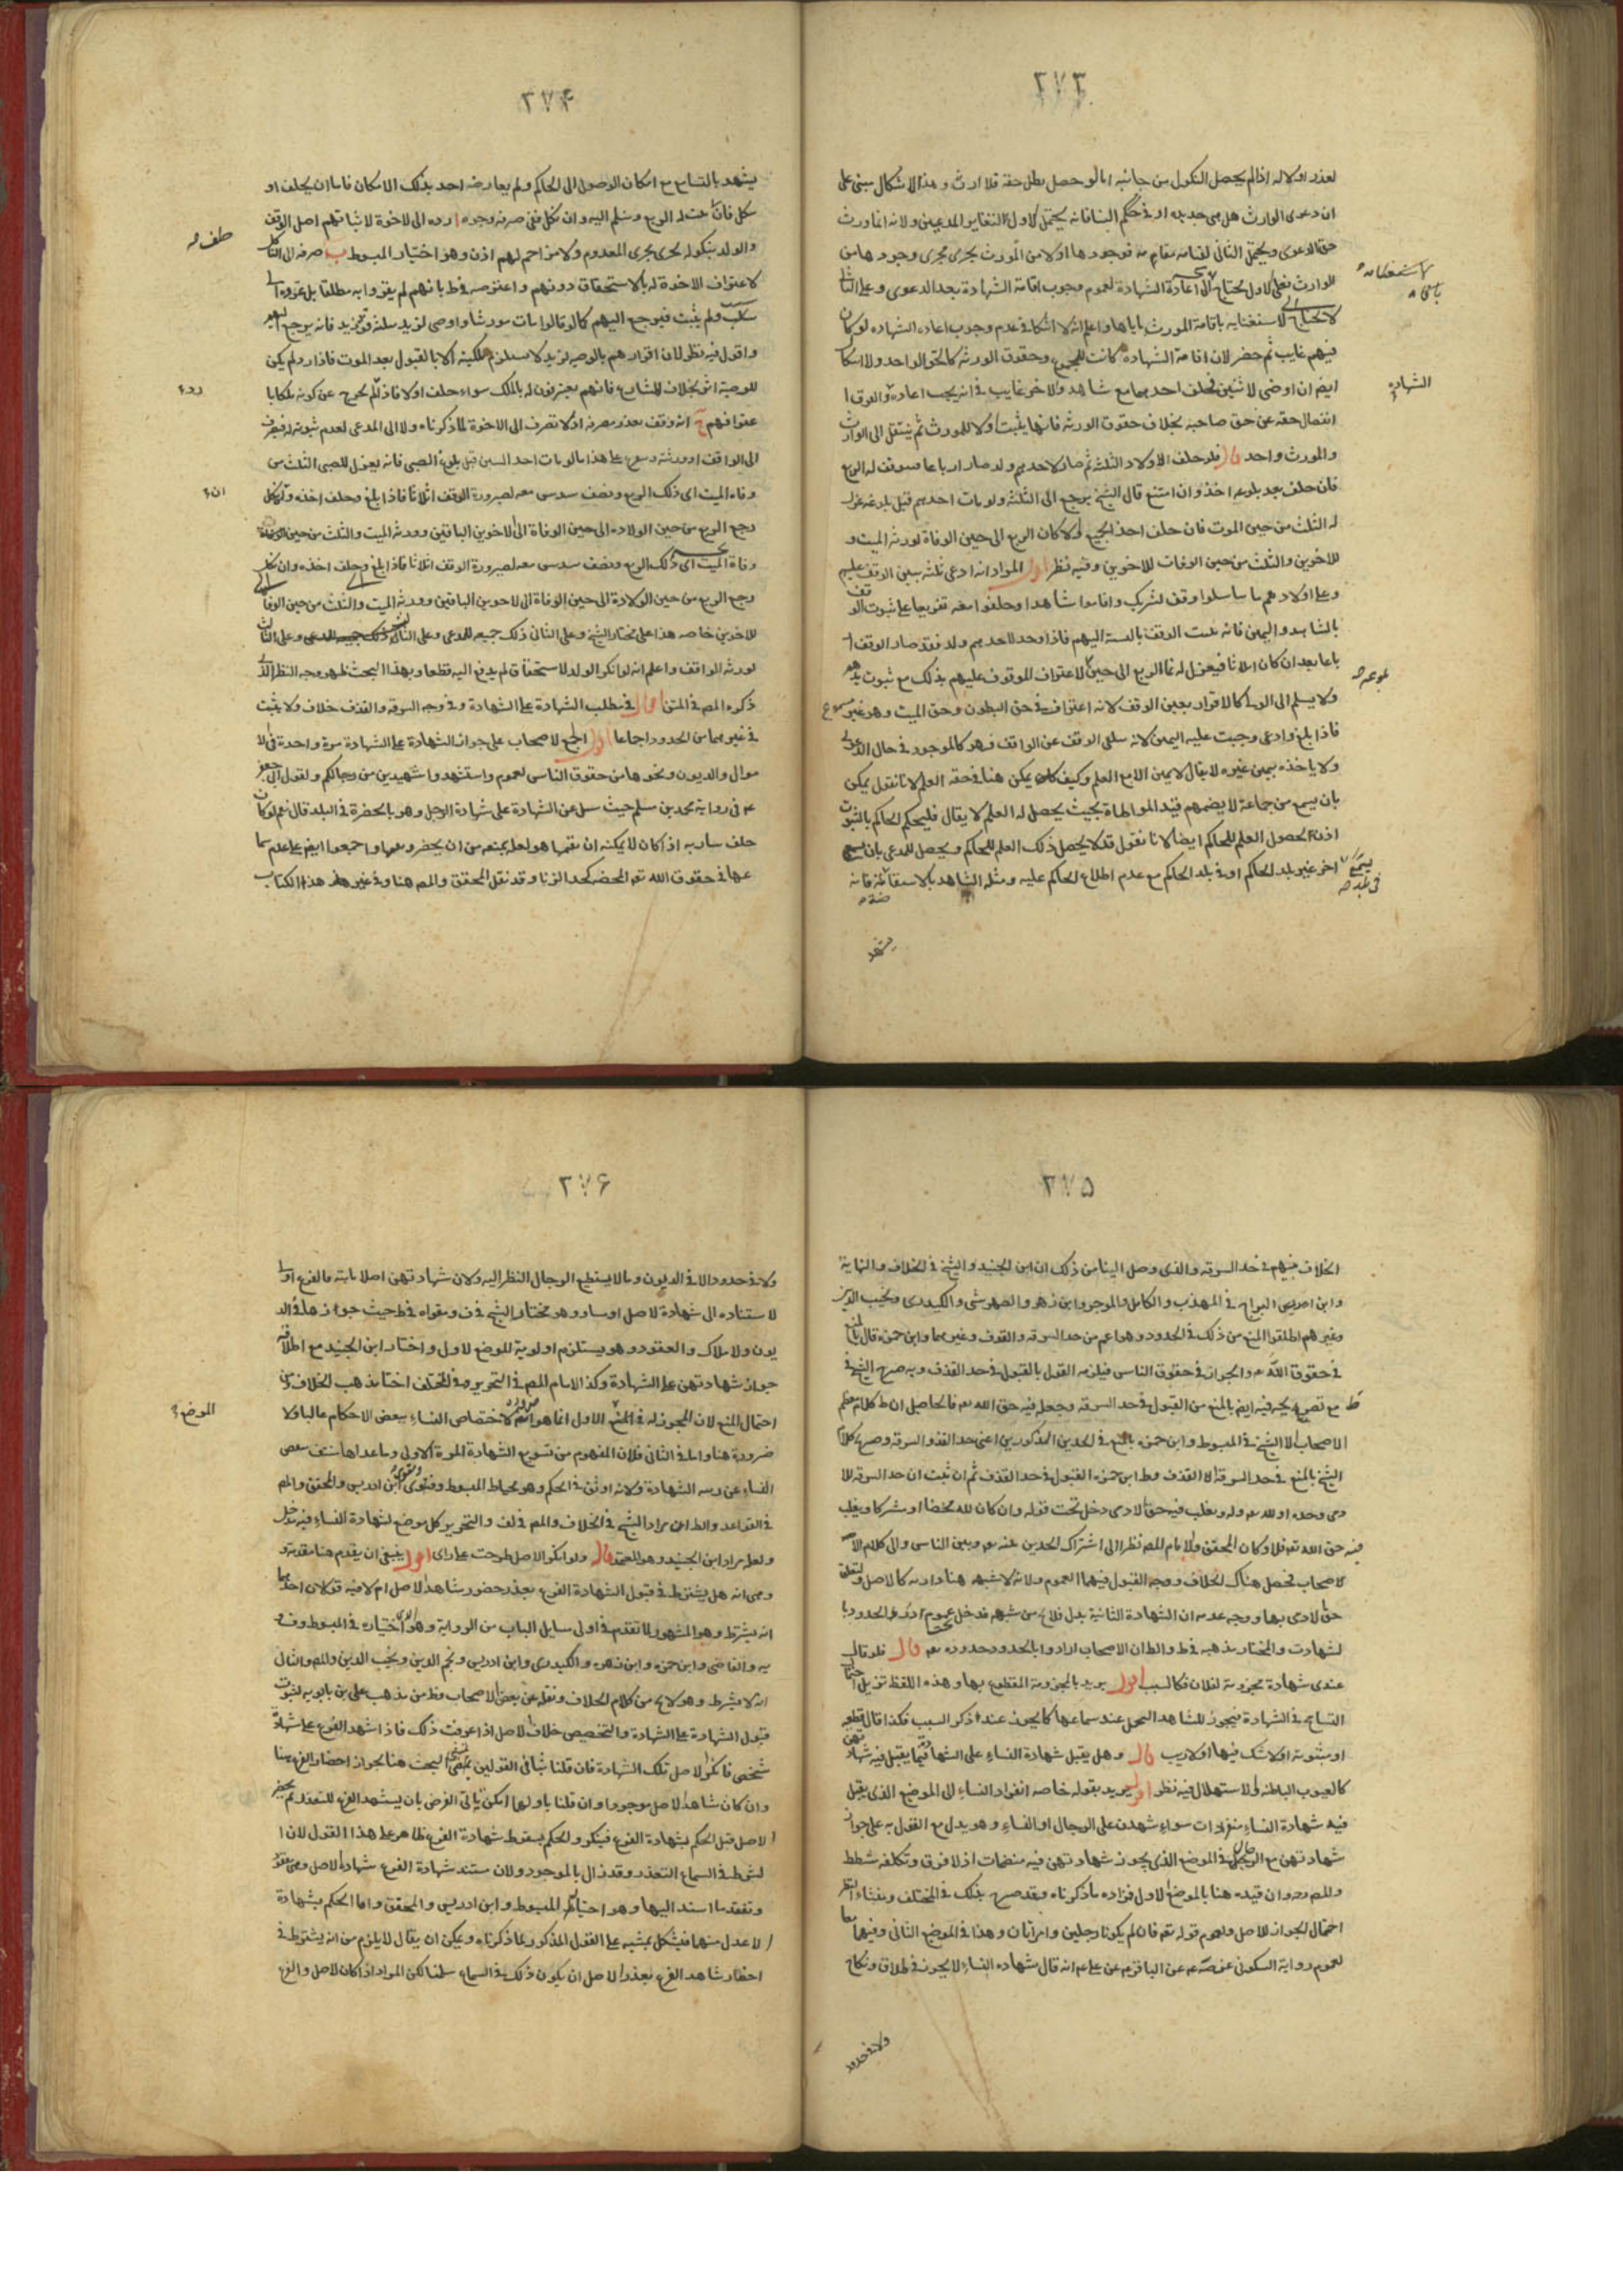 ٢٧٣
لعذر او لا لہ اذا لم يحصل النكول من جانبه اما لو حصل بطل حقه فلا ارث و هذا الاشكال مبنى على
ان دعوى الوارث هل هى جديده او فى حكم البناء فانه يحتمل الاول لتغاير المدعيين ولانه انما ورث
حق الدعوى ويحتمل الثانى لقيامه مقام فوجودها اولا من المورث يجرى مجرى وجودها من
الوارث فعلى الاول يحتاج الى اعادة الشهادة لعموم وجوب اقامة الشهادة بعد الدعوى وعلى الثانى
لا يحتاج لاستغنائه باقامة المورث اياها واعلم انه لا اشكال فى عدم وجوب اعاده الشهاده لو كان
فيهم غايب ثم حضر لان اقامة الشهادة كانت للجميع وحقوق الورثه كالحق الواحد ولا اشكال
ايضا ان اوصى لاثنين فحلف احدهما مع شاهد والاخر غايب فى انه يجب اعادة
الشهاده
انفصال حقه عن حق صاحبه بخلاف حقوق الورثه فانها يثبت اولا للمورث ثم ينتقل الى الوارث
والمورث واحد قال فلو حلف الاولاد الثلثه ثم صار لاحدهم ولد صار ارباعا فيوقف له الربع
فان حلف بعد بلوغه اخذ وان امتنع قال الشيخ يرجع الى الثلثه ولو مات احدهم قبل بلوغه عزل
له الثلث من حين الموت فان حلف اخذ الجميع والا كان الربع الى حين الوفاة لورثه الميت و
للاخوين والثلث من حين الوفات للاخوين وفيه نظر اقول المراد انه ادعى ثلثه بنين الوقف عليهم
وعلى اولادهم ما تناسلوا وقف تشريك واقاموا شاهدا وحلفوا معه تفريعا على ثبوت الوقف
بالشاهد واليمين فانه يثبت الوقف بالنسبة اليهم فاذا وجد لاحدهم ولد فقد صار الوقف ار
باعا بعد ان كان اثلاثا فيعزل له نماء الربع الى حين لاعتراف الموقوف عليهم بذلك مع ثبوت يدهم
ولا يسلم الى الولى كالاقرار بعين الوقف لانه اعتراف فى حق البطون وحق الميت وهو غير مسموع
فاذا بلغ وادعى وجبت عليه اليمين لانه يتلقى الوقف عن الواقف فهو كالموجود فى حال الدعوى
ولا ياخذ بيمين غيره لا يقال لا يمين الا مع العلم وكيف يمكن هنا فى حقه العلم لانا نقول يمكن
بان يسمع من جماعة لا يضمهم قيد المواطاة بحيث يحصل له العلم لا يقال فليحكم الحاكم بالثبوت
اذن لحصول العلم للحاكم ايضا لانا نقول قد لا يحصل ذلك العلم للحاكم ويحصل للمدعى بان
اخر غير بلد الحاكم او فى بلد الحاكم مع عدم اطلاع الحاكم عليه ومثله الشاهد بالاستفاضة فانه
يشهد
٢٧۴
يشهد بالتسامع مع امكان الوصول الى الحاكم ولم يعارضه احد بذلك الامكان فاما ان يحلف او
ينكل فان يثبت له الربع وسلم اليه وان نكل ففى صرفه وجوه ا رده الى الاخوة لاثباتهم اصل الوقف
والولد بنكوله يجرى مجرى المعدوم ولا مزاحم لهم اذن وهو اختيار المبسوط ب صرفه الى الناكل
لاعتراف الاخوة له بالاستحقاق دونهم واعترضه فى ط بانهم لم يقروا به مطلقا بل عزوه الى
سبب ولم يثبت فيرجع اليهم كما لو قالوا مات مورثنا واوصى لزيد بسلته فرد زيد فانه يرجع اليهم
واقول فيه نظر لان اقرارهم بالوصيه لزيد لا يستلزم ملكيته الا بالقبول بعد الموت فاذا رد لم يكن
للوصية اثر بخلاف المتنازع فانهم يعترفون له بالملك سواء حلف او لا فاذا لم يخرج عن كونه ملكا با
عترافهم ج انه وقف تعذر مصرفه اذ لا تصرف الى الاخوة لما ذكرناه ولا الى المدعى لعدم ثبوته فيصرف
الى الواقف او ورثته على هذا ما لو مات احد البنين قبل بلوغ الصبى فانه يعزل للصبى الثلث من
وفاه الميت اى ذلك الربع ونصف سدس معه لصيرورة الوقف اثلاثا فاذا بلغ وحلف اخذه وان نكل
رجع الربع من حين الولادة الى حين الوفاة الى الاخوين الباقين وورثة الميت والثلث من حين الوفاة
وفاة الميت اى ذلك الربع ونصف سدس معه لصيرورة الوقف اثلاثا فاذا بلغ وحلف اخذه وان نكل
رجع الربع من حين الولادة الى حين الوفاة الى الاخوين الباقين وورثة الميت والثلث من حين الوفاة
للاخوين خاصه هذا على مختار الشيخ وعلى الثانى ذلك جميعه للمدعى وعلى الثالث
لورثه الواقف واعلم انه لو انكر الولد الاستحقاق لم يدفع اليه قطعا وبهذا البحث ظهر وجه النظر الذى
ذكره المص فى المتن قال فى مطلب الشهادة على الشهادة و فى وجه السرقة والقذف خلاف ولا يثبت
فى غيرهما من الحدود اجماعا اقول اجمع الاصحاب على جواز الشهادة على الشهادة مرة واحدة فى الا
موال والديون ونحوها من حقوق الناس لعموم واستشهدوا شهيدين من رجالكم ولقول ابى جعفر
ع فى رواية محمد بن مسلم حيث سئل عن الشهادة على شهادة الرجل وهو بالحضرة فى البلد قال نعم لو كان
خلف ساريه اذا كان لا يمكنه ان يقيمها هو لعلة تمنعه من ان يحضر ويقيمها واجمعوا ايضا على عدم سما
عها فى حقوق الله تعالى المحضه كحد الزنا وقد نقل المحقق والمص هنا وفى غير هذا الكتاب
٢٧۵
الخلاف فيهم فى حد السرقه والذى وصل الينا من ذلك ان ابن الجنيد والشيخ فى الخلاف والنهاية
وابن ادريس البراج فى المهذب والكامل والموجز وابن زهره والصهرشتى والكيدرى ونجيب الدين
وغيرهم اطلقوا المنع من ذلك فى الحدود وهو اعم من حد السرقه والقذف وغيرهما وابن حمزه قال بالمنع
فى حقوق الله تعالى والجواز فى حقوق الناس فيلزمه القول بالقبول فى حد القذف وبه صرح الشيخ فى
ط مع تصريحه فيه ايضا بالمنع من القبول فى حد السرقه وجعله فيه حق الله تعالى فالحاصل ان ظ كلام معظم
الاصحاب الا الشيخ فى المبسوط وابن حمزه بالمنع فى الحدين المذكورين اعنى حد القذف والسرقه وصريح كلام
الشيخ بالمنع فى حد السرقه لا القذف وظ ابن حمزه القبول فى حد القذف ثم ان ثبت ان حد السرقه للا
دمى وحده او لله تعالى وله ويغلب فيه حق الادمى دخل تحت قوله وان كان لله محضا او مشتركا ويغلب
فيه حق الله تعالى فلا وكان المحقق والامام المص نظرا الى اشتراك الحدين عنه تعالى وبين الناس والى كلام
الاصحاب فحصل هناك الخلاف ووجه القبول فيهما العموم ولانه لا شبهه هنا دارئه كالاصل ولتعلق
حق الادمى بها ووجه عدمه ان الشهادة الثانية بدل فلا يخ من شبهه فدخل عموم ادرءوا الحدود با
لشبهات والمختار مذهبه فى ط والظ ان الاصحاب ارادوا بالحدود حدوده تعالى قال فلو قال
عندى شهادة مجزومة لفلان فكالسبب اقول يريد بالمجزومة المقطوع بها وهذه اللفظة تزيل احتمال
التسامح فى الشهادة فيجوز للشاهد التحمل عند سماعها كما يجوز عند ذكر السبب فكذا قال قطعيه
او مبتوته او لا شك فيها او لا ريب قال وهل يقبل شهادة النساء على الشهادة فيما يقبل فيه شهادتهن
كالعيوب الباطنه والاستهلال فيه نظر اقول يريد بقوله خاصه انفراد النساء الى الموضع الذى يقبل
فيه شهادة النساء منفردات سواء شهدن على الرجال او النساء وهو يدل مع القول به على جواز
شهادتهن مع الرجال فى الموضع الذى يجوز شهادتهن فيه منضمات اذ لا فرق وتكلفه شطط
والمص ره وان قيده هنا بالموضع الاول فمراده ما ذكرناه وقد صرح بذلك فى المختلف ومنشاء النظر
احتمال الجواز للاصل ولعموم قوله تعالى فان لم يكونا رجلين فرجل وامرأتان وهذا فى الموضع الثانى وفيهما معا
لعموم رواية السكونى عن ص ع عن الباقر ع عن على ع انه قال شهاده النساء لا يجوز فى طلاق ونكاح
ولا فى حدود
٢٧۶
ولا فى حدود الا فى الديون وما لا يستطيع الرجال النظر اليه ولان شهادتهن اصلا ثابته فالفرع اولى
لاستناده الى شهادة الاصل او ساو وهو مختار الشيخ فى ف وقواه فى ط حيث جوازها فى الد
يون والاملاك والعقود وهو يستلزم اولوية الموضع الاول واختار ابن الجنيد مع اطلاقه
جواز شهادتهن على الشهادة وكذا الامام المص فى التحرير وفى المختلف اختار مذهب الخلاف ومن
احتمال المنع لان المجوز له فى الاول انما هو الضرورة لاختصاص النساء ببعض الاحكام غالبا ولا
ضرورة هنا واما فى الثانى فلان المفهوم من تسويغ الشهادة المرة الاولى وما عداها
النساء عن رتبه الشهادة ولانه اوثق فى الحكم وهو محتاط المبسوط وفتوى ابن ادريس والمحقق والمص
فى القواعد والظ ان مراد الشيخ فى الخلاف والمص فى لف والتحرير كل موضع لشهادة النساء فيه مدخل
ولعله مراد ابن الجنيد وهو المعتمد قال ولو انكر الاصل طرحت على راى اقول ينبغى ان يقدم هنا مقدمة و
هى انه هل يشترط فى قبول الشهادة الفرع تعذر حضور شاهد الاصل ام لا فيه قولان احدهما
انه يشترط وهو المشهور لما تقدم فى اولى مسايل الباب من الرواية وهو اختياره فى المبسوط وف
يه والقاضى وابن حمزه وابن زهره والكيدرى وابن ادريس ونجم الدين ونجيب الدين والمص والثانى
انه لا يشترط وهو لايح من كلام الخلاف ونقله عن بعض الاصحاب وظ من مذهب على بن بابويه لثبوت
قبول الشهادة على الشهادة والتخصيص خلاف الاصل اذا عرفت ذلك فاذا شهد الفرع على شهادة
شخص فانكر الاصل تلك الشهادة فان قلنا بثانى القولين تمشى البحث هنا بجواز احضار الفرع هنا
وان كان شاهد الاصل موجودا وان قلنا باولهما امكن ياتى الفرض بان يشهد الفرع للتعذر ثم يحضر
الاصل قبل الحكم بشهادة الفرع فينكر والحكم بسقوط شهادة الفرع ظاهر على هذا القول لان ا
لشرط فى السماع التعذر وقد زال بالموجود ولان مستند شهادة الفرع شهادة الاصل وهى مفقودة
وتفقد ما استند اليها وهو اختيار المبسوط وابن ادريس والمحقق واما الحكم بشهادة
الاعدل منهما فيشكل تمشيه على القول المذكور لما ذكرناه ويمكن ان يقال لا يلزم من انه يشترط فى
احضار شاهد الفرع تعذر الاصل ان يكون ذلك فى السماع سلمنا لكن المراد اذا كان الاصل والفرع
الموضع